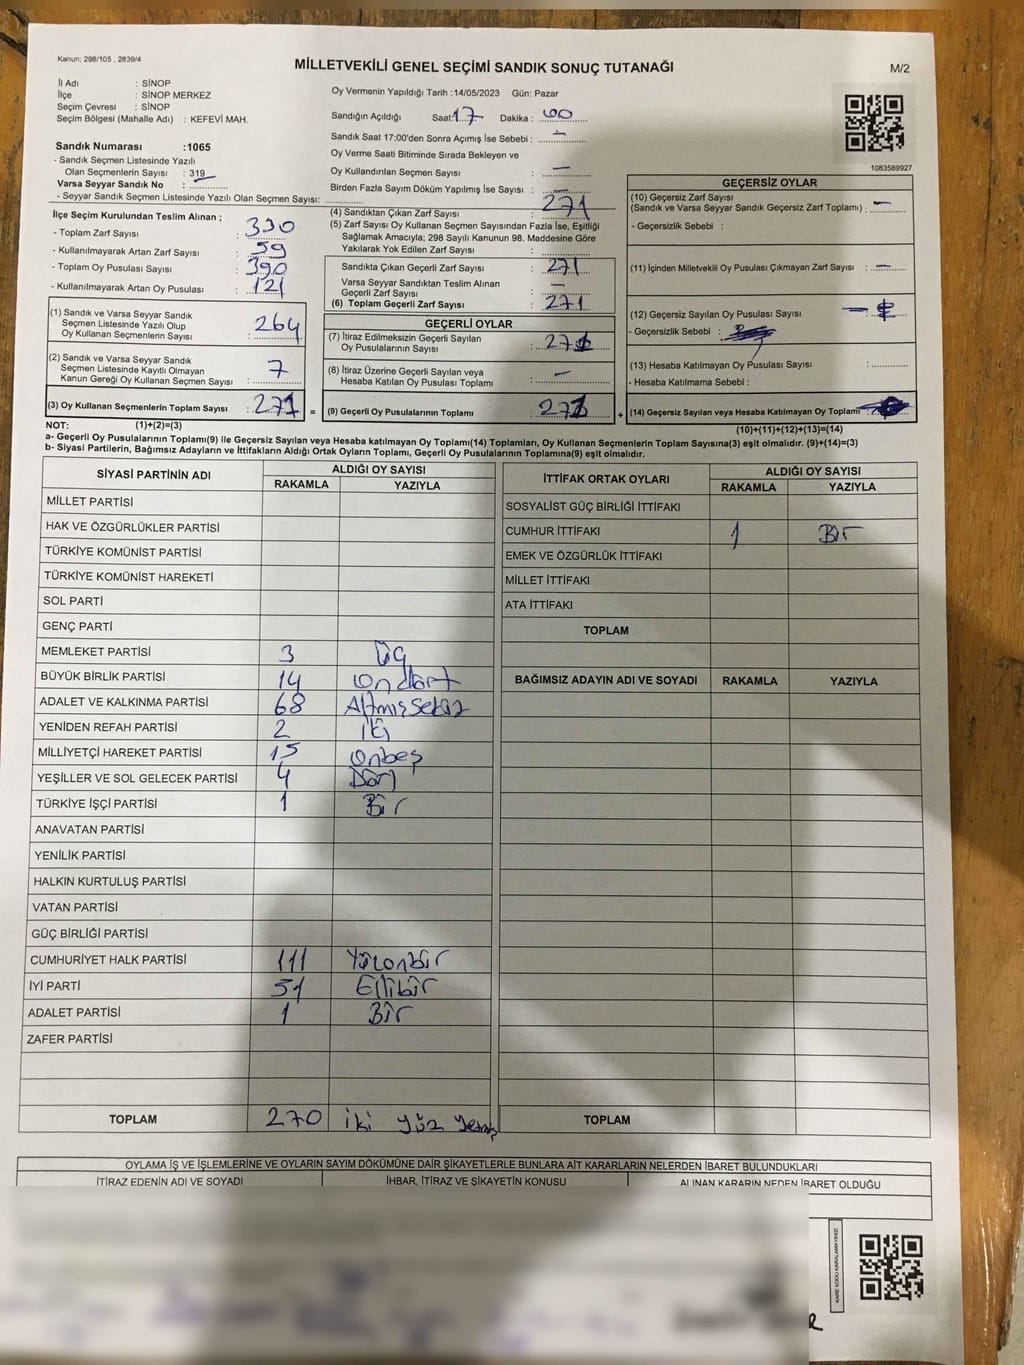 Kanun; 298/105 , 2839/4
MİLLETVEKİLİ GENEL SEÇİMİ SANDIK SONUÇ TUTANAĞI
M/2
İl Adı : SİNOP
İlçe : SİNOP MERKEZ
Seçim Çevresi : SİNOP
Seçim Bölgesi (Mahalle Adı) : KEFEVİ MAH.
Sandık Numarası :1065
- Sandık Seçmen Listesinde Yazılı
Olan Seçmenlerin Sayısı : 319
Varsa Seyyar Sandık No :
- Seyyar Sandık Seçmen Listesinde Yazılı Olan Seçmen Sayısı:
Oy Vermenin Yapıldığı Tarih :14/05/2023 Gün: Pazar
Sandığın Açıldığı Saat: 17 Dakika : 00
Sandık Saat 17:00'den Sonra Açımış İse Sebebi : —
Oy Verme Saati Bitiminde Sırada Bekleyen ve
Oy Kullandırılan Seçmen Sayısı : —
Birden Fazla Sayım Döküm Yapılmış İse Sayısı : —
1083589927
İlçe Seçim Kurulundan Teslim Alınan ;
- Toplam Zarf Sayısı : 330
- Kullanılmayarak Artan Zarf Sayısı : 59
- Toplam Oy Pusulası Sayısı : 390
- Kullanılmayarak Artan Oy Pusulası : 121
(1) Sandık ve Varsa Seyyar Sandık
Seçmen Listesinde Yazılı Olup
Oy Kullanan Seçmenlerin Sayısı : 264
(2) Sandık ve Varsa Seyyar Sandık
Seçmen Listesinde Kayıtlı Olmayan
Kanun Gereği Oy Kullanan Seçmen Sayısı : 7
(3) Oy Kullanan Seçmenlerin Toplam Sayısı : 271 =
(4) Sandıktan Çıkan Zarf Sayısı : 271
(5) Zarf Sayısı Oy Kullanan Seçmen Sayısından Fazla İse, Eşitliği
Sağlamak Amacıyla; 298 Sayılı Kanunun 98. Maddesine Göre
Yakılarak Yok Edilen Zarf Sayısı :
Sandıkta Çıkan Geçerli Zarf Sayısı : 271
Varsa Seyyar Sandıktan Teslim Alınan
Geçerli Zarf Sayısı : —
(6) Toplam Geçerli Zarf Sayısı : 271
GEÇERLİ OYLAR
(7) İtiraz Edilmeksizin Geçerli Sayılan
Oy Pusulalarının Sayısı : 271
(8) İtiraz Üzerine Geçerli Sayılan veya
Hesaba Katılan Oy Pusulası Toplamı : —
(9) Geçerli Oy Pusulalarının Toplamı : 271 +
GEÇERSİZ OYLAR
(10) Geçersiz Zarf Sayısı
(Sandık ve Varsa Seyyar Sandık Geçersiz Zarf Toplamı) : —
- Geçersizlik Sebebi :
(11) İçinden Milletvekili Oy Pusulası Çıkmayan Zarf Sayısı : —
(12) Geçersiz Sayılan Oy Pusulası Sayısı : —
- Geçersizlik Sebebi :
(13) Hesaba Katılmayan Oy Pusulası Sayısı :
- Hesaba Katılmama Sebebi :
(14) Geçersiz Sayılan veya Hesaba Katılmayan Oy Toplamı :
NOT: (1)+(2)=(3)
(10)+(11)+(12)+(13)=(14)
a- Geçerli Oy Pusulalarının Toplamı(9) ile Geçersiz Sayılan veya Hesaba katılmayan Oy Toplamı(14) Toplamları, Oy Kullanan Seçmenlerin Toplam Sayısına(3) eşit olmalıdır. (9)+(14)=(3)
b- Siyasi Partilerin, Bağımsız Adayların ve İttifakların Aldığı Ortak Oyların Toplamı, Geçerli Oy Pusulalarının Toplamına(9) eşit olmalıdır.
SİYASİ PARTİNİN ADI ALDIĞI OY SAYISI
RAKAMLA YAZIYLA
MİLLET PARTİSİ
HAK VE ÖZGÜRLÜKLER PARTİSİ
TÜRKİYE KOMÜNİST PARTİSİ
TÜRKİYE KOMÜNİST HAREKETİ
SOL PARTİ
GENÇ PARTİ
MEMLEKET PARTİSİ 3 Üç
BÜYÜK BİRLİK PARTİSİ 14 ondört
ADALET VE KALKINMA PARTİSİ 68 Altmışsekiz
YENİDEN REFAH PARTİSİ 2 iki
MİLLİYETÇİ HAREKET PARTİSİ 15 onbeş
YEŞİLLER VE SOL GELECEK PARTİSİ 4 Dört
TÜRKİYE İŞÇİ PARTİSİ 1 Bir
ANAVATAN PARTİSİ
YENİLİK PARTİSİ
HALKIN KURTULUŞ PARTİSİ
VATAN PARTİSİ
GÜÇ BİRLİĞİ PARTİSİ
CUMHURİYET HALK PARTİSİ 111 Yüzonbir
İYİ PARTİ 51 Ellibir
ADALET PARTİSİ 1 Bir
ZAFER PARTİSİ
TOPLAM 270 iki yüz yetmiş
İTTİFAK ORTAK OYLARI ALDIĞI OY SAYISI
RAKAMLA YAZIYLA
SOSYALİST GÜÇ BİRLİĞİ İTTİFAKI
CUMHUR İTTİFAKI 1 Bir
EMEK VE ÖZGÜRLÜK İTTİFAKI
MİLLET İTTİFAKI
ATA İTTİFAKI
TOPLAM
BAĞIMSIZ ADAYIN ADI VE SOYADI RAKAMLA YAZIYLA
TOPLAM
OYLAMA İŞ VE İŞLEMLERİNE VE OYLARIN SAYIM DÖKÜMÜNE DAİR ŞİKAYETLERLE BUNLARA AİT KARARLARIN NELERDEN İBARET BULUNDUKLARI
İTİRAZ EDENİN ADI VE SOYADI İHBAR, İTİRAZ VE ŞİKAYETİN KONUSU ALINAN KARARIN NEDEN İBARET OLDUĞU
KARE KODU KARALAMAYINIZ!